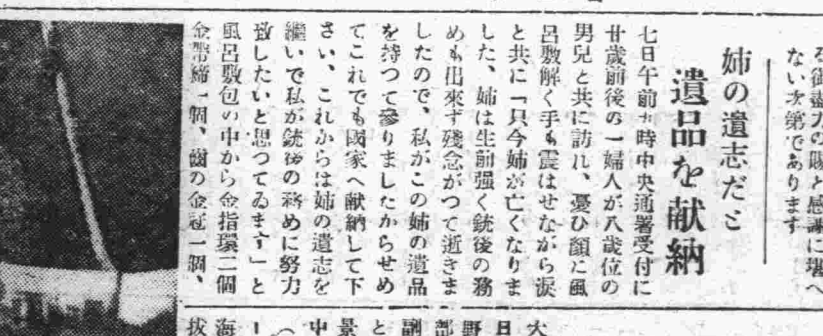 る御盡力の賜と感謝に堪へ
ない次第であります
姉の遺志だと
遺品を献納
七日午前十時中央通署受付に
廿歳前後の一婦人が八歳位の
男兒と共に訪れ、憂ひ顔に風
呂敷解く手も震はせながら涙
と共に「只今姉が亡くなりま
した、姉は生前强く銃後の務
めも出來ず殘念がつて逝きま
したので、私がこの姉の遺品
を持つて參りましたからせめ
てこれでも國家へ献納して下
さい、これからは姉の遺志を
繼いで私が銃後の務めに努力
致したいと思つてゐます」と
風呂敷包の中から金指環二個
金帶締一個、齒の金冠一個、
大
日
野
部
副
と
景
中
（
ー
海
拔